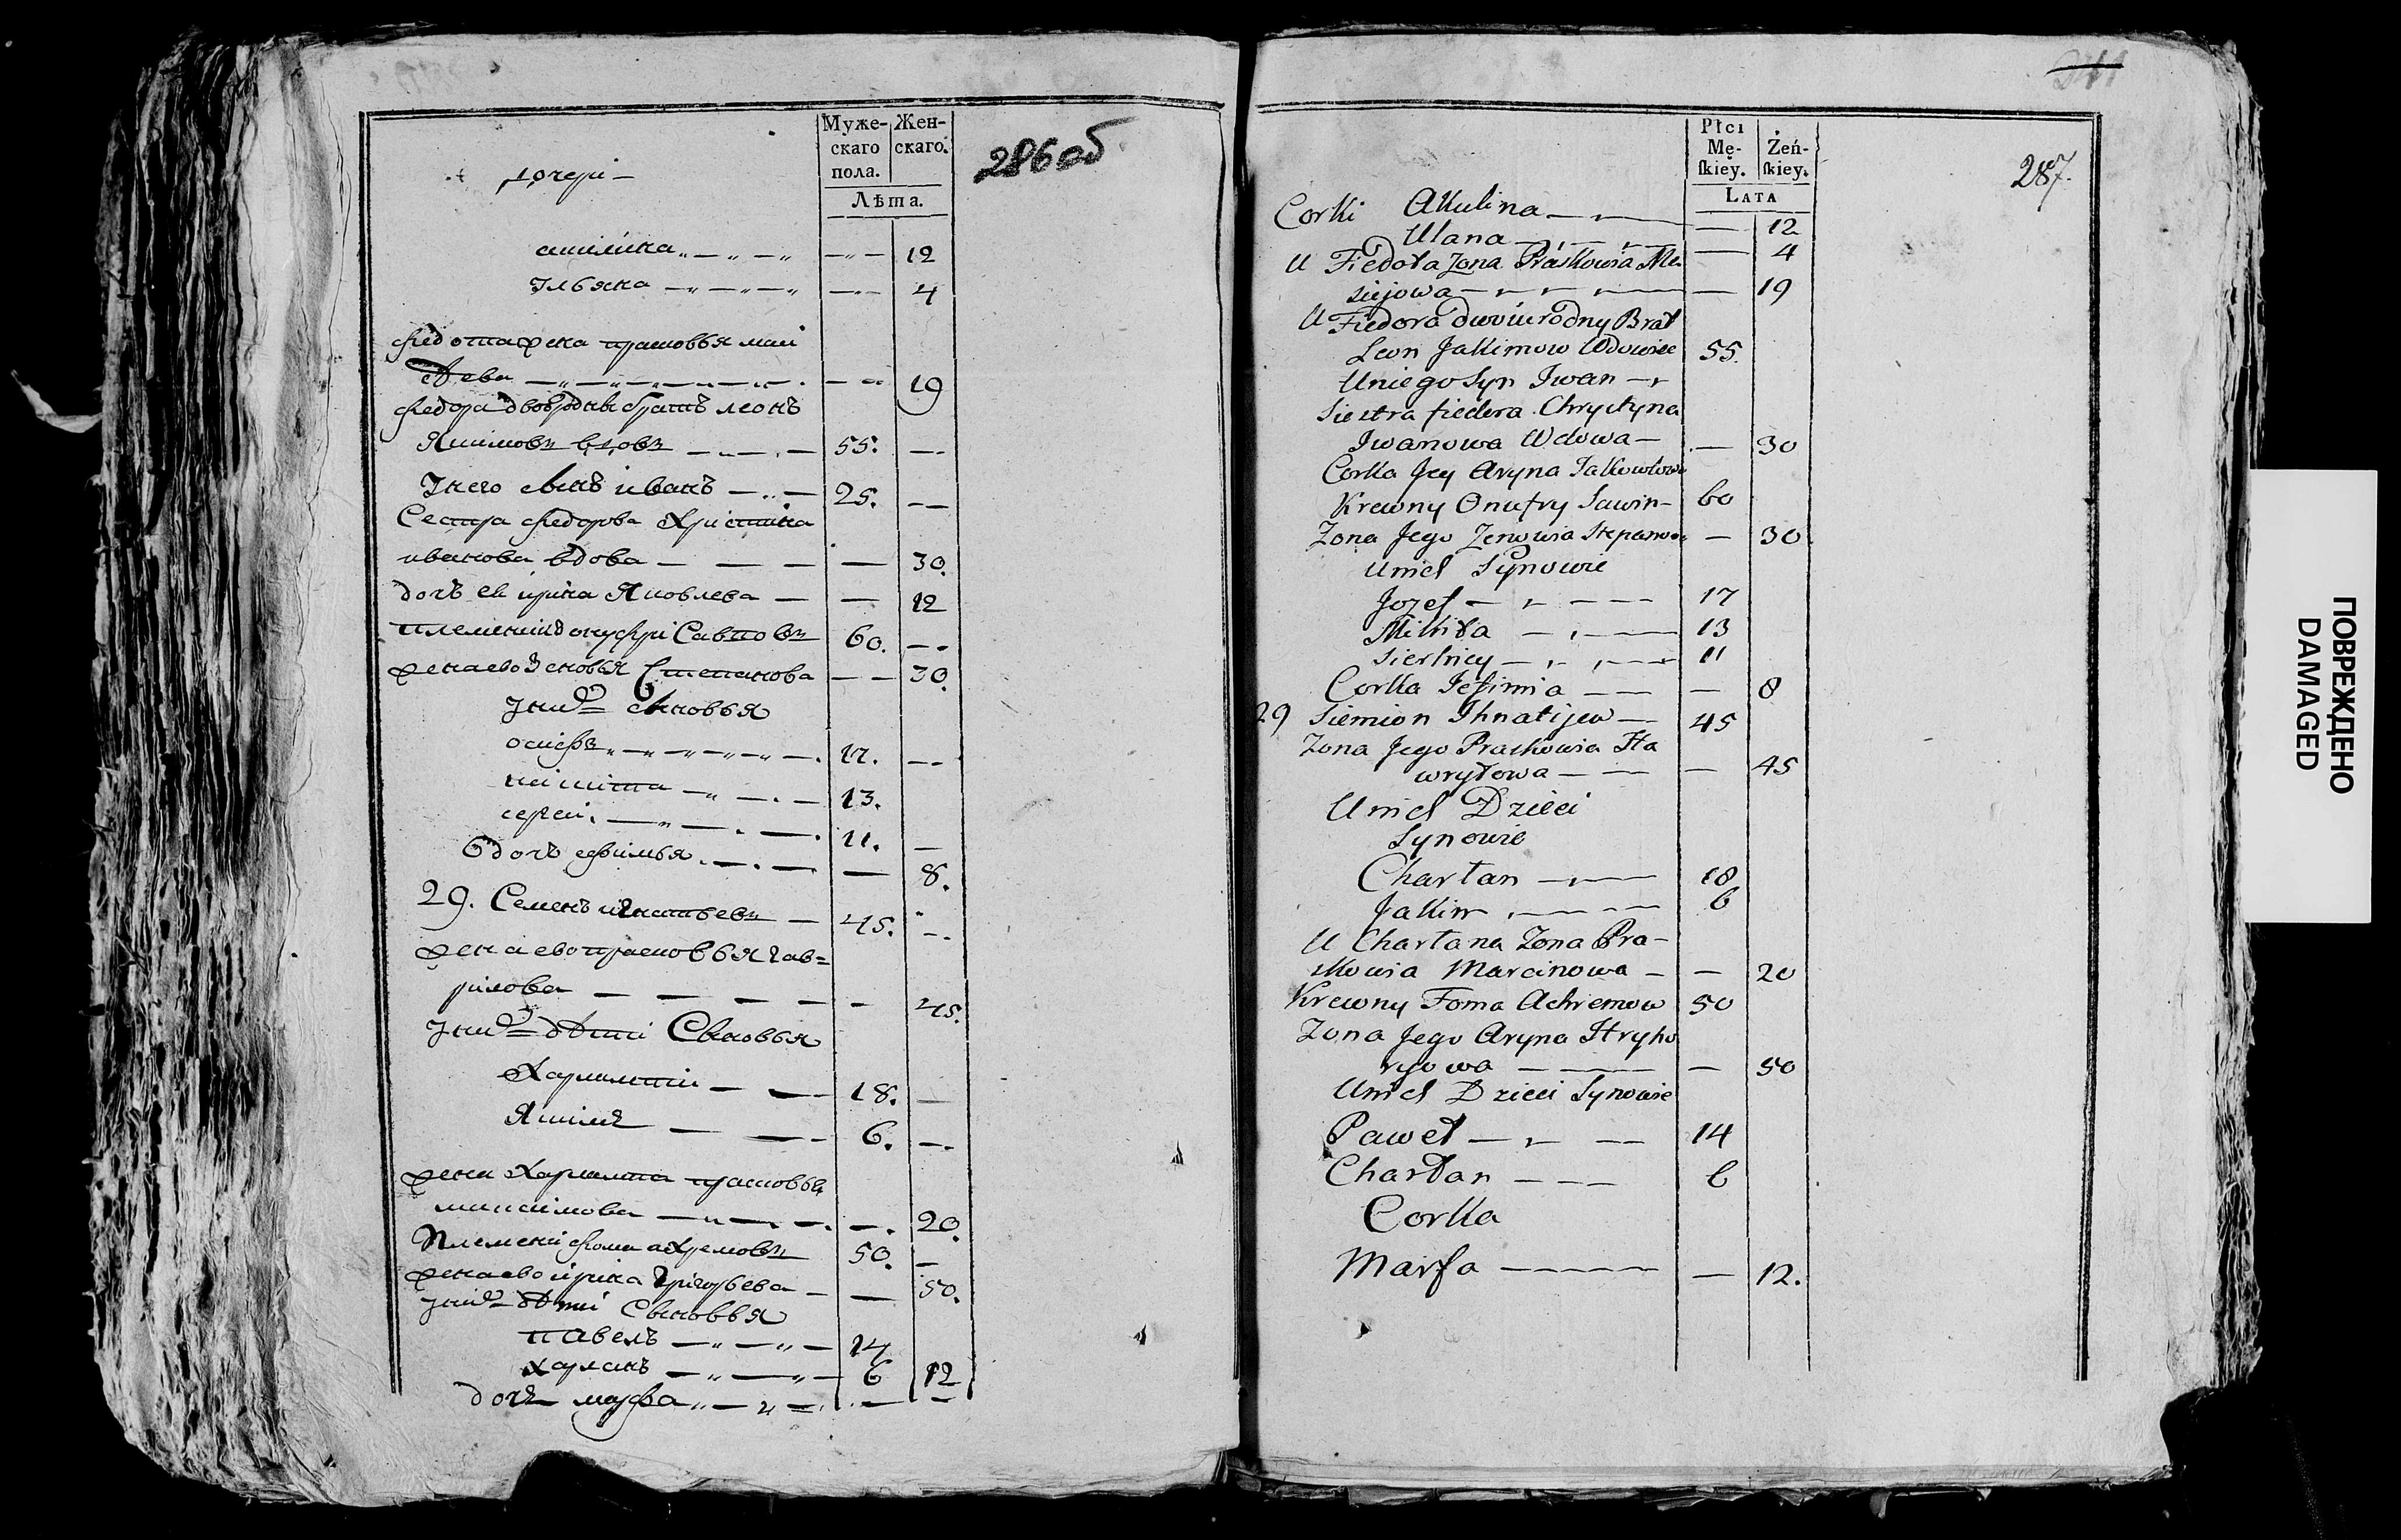 Муже-
скаго
пола.
Жен-
скаго.
Лѣта.
286 об
дочери —
акилина 12
Ульяна 4
Федота жена прасковья маи
сѣева 19
Федора двоюродны братъ леонъ
Якимовъ вдовъ 55.
Унего сынъ иванъ 25.
Сестра федорова Христина
иванова вдова 30.
дочь ей ирина Яковлева 12
племений онуфри Савиновъ 60.
жена ево Зеновья Степанова 30.
Уних сыновья
осифъ 17.
никита 13.
сергей 11.
дочь ефимья 8.
29. Семенъ игнатьевъ 45.
жена ево прасковья гав=
рилова 45.
Уних дѣти Сыновья
Харитан 18.
Яким 6.
жена Харитана прасковья
20.
Племени фома ахремовъ 50.
жена ево ирина григорьева 50.
уних дѣти Сыновья
павелъ 14
6
дочь марфа 12
Płci
Mę-
ſkiey.
Żeń-
ſkiey.
LATA
287.
Corki Akulina 12
Ulana 4
U Fiedota Zona Praskowia Me-
siejowa 19
U Fiedora dwoiurodny Brat
Leon Jakimow Wdowiec 55.
Uniego Syn Iwan
Siestra fiedora Chrystyna
Iwanowa Wdowa — 30
Corka Jey Aryna Jakowlowa
Krewny Onufry Sawin — 60
Zona Jego Zenowia Stepanow 30
Unich Synowie
Jozef 17
Mikita 13
Sierhiey 11
Corka Jefimia 8
29 Siemion Ihnatijew 45
Zona Jego Praskowia Ha
wryłowa 45
Unich Dzieci
Synowie
Chartan 18
Jakim 6
U Chartana Zona Pra-
skowia Marcinowa 20
Krewny Foma Achremow 50
Zona Jego Aryna Hryho
ryowa 50
Unich Dzieci Synowie
Paweł 14
Chartan 6
Corka
Marfa 12.
ПОВРЕЖДЕНО
DAMAGED